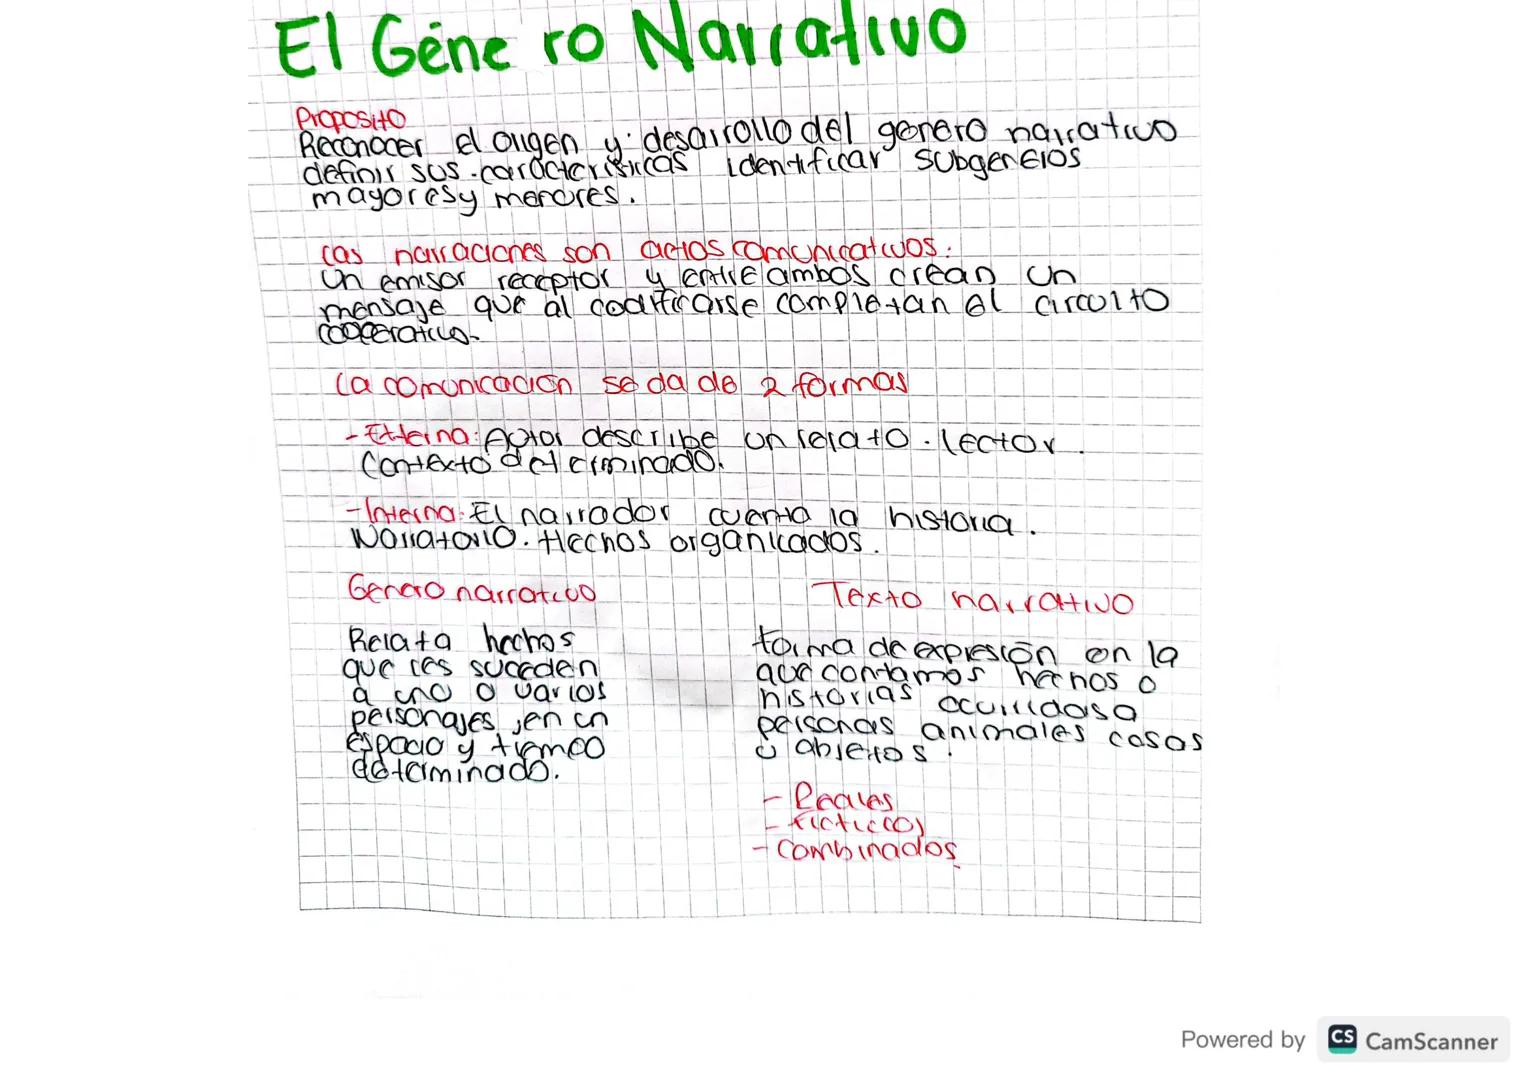 El Géne ro Narrativo
Proposito
Reconocer el origen y desarrollo del genero narrativo
definir sus características identificar subgeneros
mayores y menores.
Las narraciones son actos comunicativos:
Un emisor receptor y entre ambos crean un
mensaje que al codificarse completan el circuito
cooperativo.
La comunicación se da de 2 formas
- Externa: Autor describe un relato. Lector.
Contexto determinado.
- Interna: El narrador cuenta la historia.
Narratario. Hechos organicados.
Genero narrativo
Relata hechos
que les suceden
a uno o varios
personajes, en un
espacio y tiempo
determinado.
Texto narrativo
forma de expresión en la
que contamos hechos o
historias ocurridas a
personas animales cosas
u objetos.
- Reales
- ficticios
- Combinados
Powered by CS CamScanner